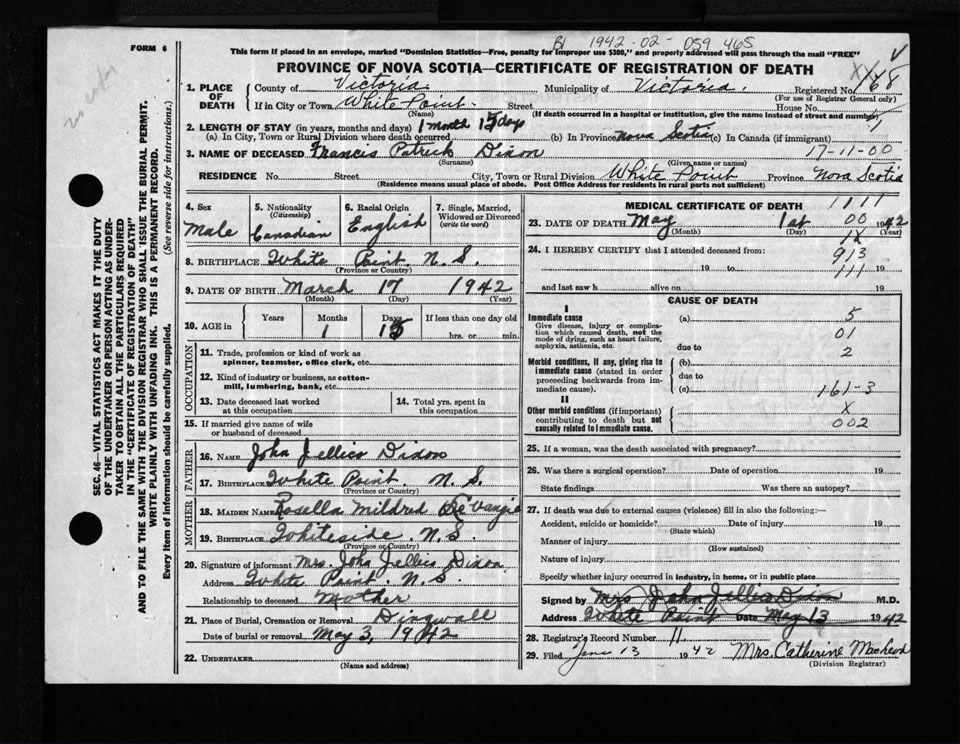 FORM 6
This form if placed in an envelope, marked "Dominion Statistics—Free, penalty for improper use $300," and properly addressed will pass through the mail "FREE"
1942-02-059465
PROVINCE OF NOVA SCOTIA—CERTIFICATE OF REGISTRATION OF DEATH
168
1. PLACE OF DEATH
County of Victoria Municipality of Victoria. Registered No.
(For use of Registrar General only)
If in City or Town White Point Street House No.
(Name) (If death occurred in a hospital or institution, give the name instead of street and number)
2. LENGTH OF STAY (in years, months and days) 1 month 15 days
(a) In City, Town or Rural Division where death occurred (b) In Province Nova Scotia (c) In Canada (if immigrant)
3. NAME OF DECEASED Francis Patrick Dixon 17-11-00
(Surname) (Given name or names)
RESIDENCE No. Street. City, Town or Rural Division White Point Province Nova Scotia
(Residence means usual place of abode. Post Office Address for residents in rural parts not sufficient)
4. Sex
Male
5. Nationality (Citizenship)
Canadian
6. Racial Origin
English
7. Single, Married, Widowed or Divorced (write the word)
8. BIRTHPLACE White Point N.S.
(Province or Country)
9. DATE OF BIRTH March 17 1942
(Month) (Day) (Year)
10. AGE in Years Months Days If less than one day old
1 15 hrs. or min.
OCCUPATION
11. Trade, profession or kind of work as spinner, teamster, office clerk, etc.
12. Kind of industry or business, as cotton-mill, lumbering, bank, etc.
13. Date deceased last worked at this occupation
14. Total yrs. spent in this occupation
15. If married give name of wife or husband of deceased
FATHER
16. NAME John Jellico Dixon
17. BIRTHPLACE White Point. N.S.
(Province or Country)
MOTHER
18. MAIDEN NAME Rosella Mildred
19. BIRTHPLACE Whiteside. N.S.
(Province or Country)
20. Signature of informant Mrs. John Jellico Dixon
Address White Point. N.S.
Relationship to deceased Mother
21. Place of Burial, Cremation or Removal Dingwall
Date of burial or removal May 3, 1942
22. UNDERTAKER
(Name and address)
MEDICAL CERTIFICATE OF DEATH
1111
23. DATE OF DEATH May 1st 00 1942
(Month) (Day) (Year)
1X
24. I HEREBY CERTIFY that I attended deceased from:
913
19 to 111 19
and last saw h alive on 19
CAUSE OF DEATH
I
Immediate cause (a) 5
Give disease, injury or complication which caused death, not the mode of dying, such as heart failure, asphyxia, asthenia, etc.
01
due to 2
Morbid conditions, if any, giving rise to immediate cause (stated in order proceeding backwards from immediate cause).
(b)
due to
(c) 161-3
II
X
Other morbid conditions (if important) contributing to death but not causally related to immediate cause.
002
25. If a woman, was the death associated with pregnancy?
26. Was there a surgical operation? Date of operation 19
State findings Was there an autopsy?
27. If death was due to external causes (violence) fill in also the following:—
Accident, suicide or homicide? Date of injury 19
(State which)
Manner of injury
(How sustained)
Nature of injury
Specify whether injury occurred in industry, in home, or in public place
Signed by Mrs John Jellico Dixon M.D.
Address White Point Date May 13 1942
28. Registrar's Record Number 11.
29. Filed June 13 1942 Mrs. Catherine
(Division Registrar)
SEC. 46—VITAL STATISTICS ACT MAKES IT THE DUTY
OF THE UNDERTAKER OR PERSON ACTING AS UNDER-
TAKER TO OBTAIN ALL THE PARTICULARS REQUIRED
IN THE "CERTIFICATE OF REGISTRATION OF DEATH"
AND TO FILE THE SAME WITH THE DIVISION REGISTRAR WHO SHALL ISSUE THE BURIAL PERMIT.
WRITE PLAINLY WITH UNFADING INK. THIS IS A PERMANENT RECORD.
Every item of information should be carefully supplied. (See reverse side for instructions.)